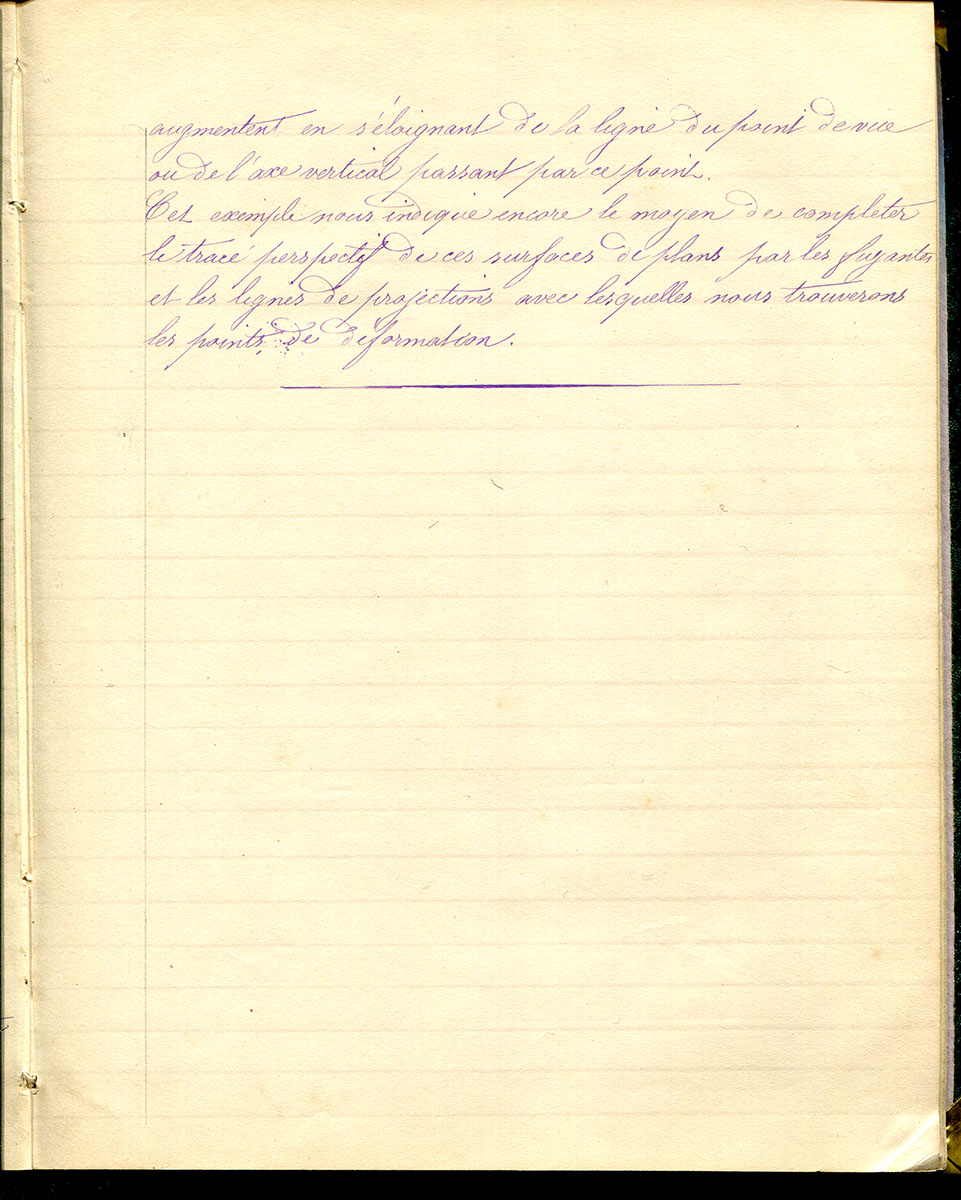 augmentent en s'éloignant de la ligne du point de vue
ou de l'axe vertical passant par ce point.
Cet exemple nous indique encore le moyen de completer
le tracé perspectif de ces surfaces de plans par les fuyantes
et les lignes de projections avec lesquelles nous trouverons
les points de déformation.